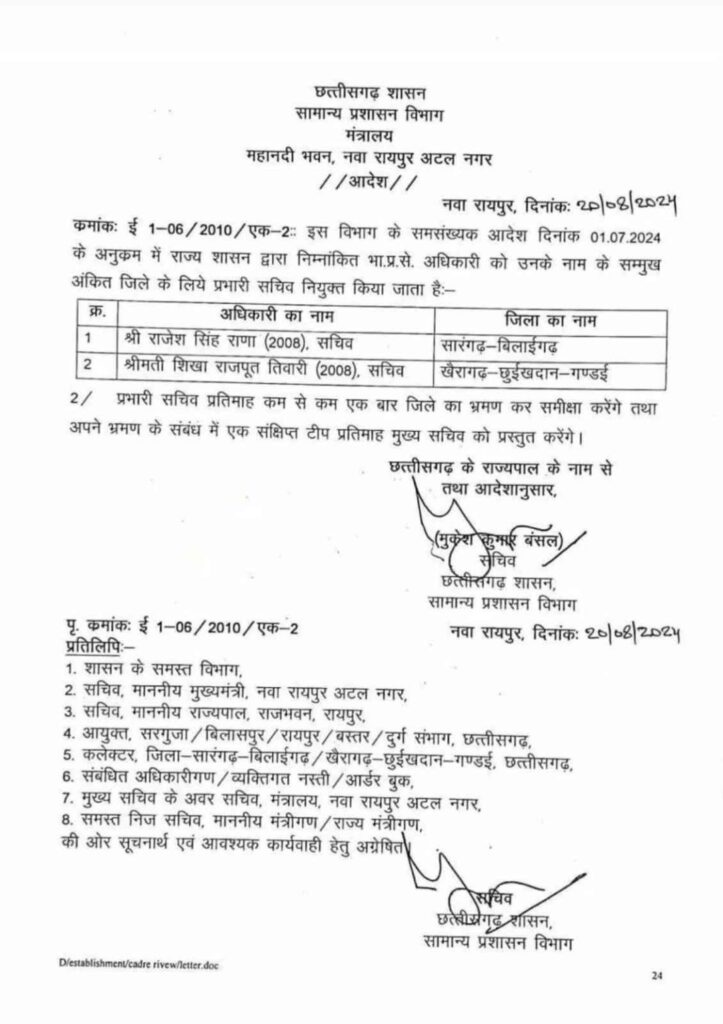 छत्तीसगढ़ शासन
सामान्य प्रशासन विभाग
मंत्रालय
महानदी भवन, नवा रायपुर अटल नगर
//आदेश//
नवा रायपुर, दिनांकः 20/08/2024
कमांकः ई 1-06/2010/एक-2:: इस विभाग के समसंख्यक आदेश दिनांक 01.07.2024
के अनुकम में राज्य शासन द्वारा निम्नांकित भा.प्र.से. अधिकारी को उनके नाम के सम्मुख
अंकित जिले के लिये प्रभारी सचिव नियुक्त किया जाता है:–
क्र. अधिकारी का नाम जिला का नाम
1 श्री राजेश सिंह राणा (2008), सचिव सारंगढ़–बिलाईगढ़
2 श्रीमती शिखा राजपूत तिवारी (2008), सचिव खैरागढ़–छुईखदान–गण्डई
2/ प्रभारी सचिव प्रतिमाह कम से कम एक बार जिले का भ्रमण कर समीक्षा करेंगे तथा
अपने भ्रमण के संबंध में एक संक्षिप्त टीप प्रतिमाह मुख्य सचिव को प्रस्तुत करेंगे।
छत्तीसगढ़ के राज्यपाल के नाम से
तथा आदेशानुसार,
(मुकेश कुमार बंसल)
सचिव
छत्तीसगढ़ शासन,
सामान्य प्रशासन विभाग
पृ. कमांकः ई 1-06/2010/एक-2 नवा रायपुर, दिनांकः 20/08/2024
प्रतिलिपिः–
1. शासन के समस्त विभाग,
2. सचिव, माननीय मुख्यमंत्री, नवा रायपुर अटल नगर,
3. सचिव, माननीय राज्यपाल, राजभवन, रायपुर,
4. आयुक्त, सरगुजा/बिलासपुर/रायपुर/बस्तर/दुर्ग संभाग, छत्तीसगढ़,
5. कलेक्टर, जिला–सारंगढ़–बिलाईगढ़/खैरागढ़–छुईखदान–गण्डई, छत्तीसगढ़,
6. संबंधित अधिकारीगण/व्यक्तिगत नस्ती/आर्डर बुक,
7. मुख्य सचिव के अवर सचिव, मंत्रालय, नवा रायपुर अटल नगर,
8. समस्त निज सचिव, माननीय मंत्रीगण/राज्य मंत्रीगण,
की ओर सूचनार्थ एवं आवश्यक कार्यवाही हेतु अग्रेषित।
सचिव
छत्तीसगढ़ शासन,
सामान्य प्रशासन विभाग
D/establishment/cadre rivew/letter.doc
24